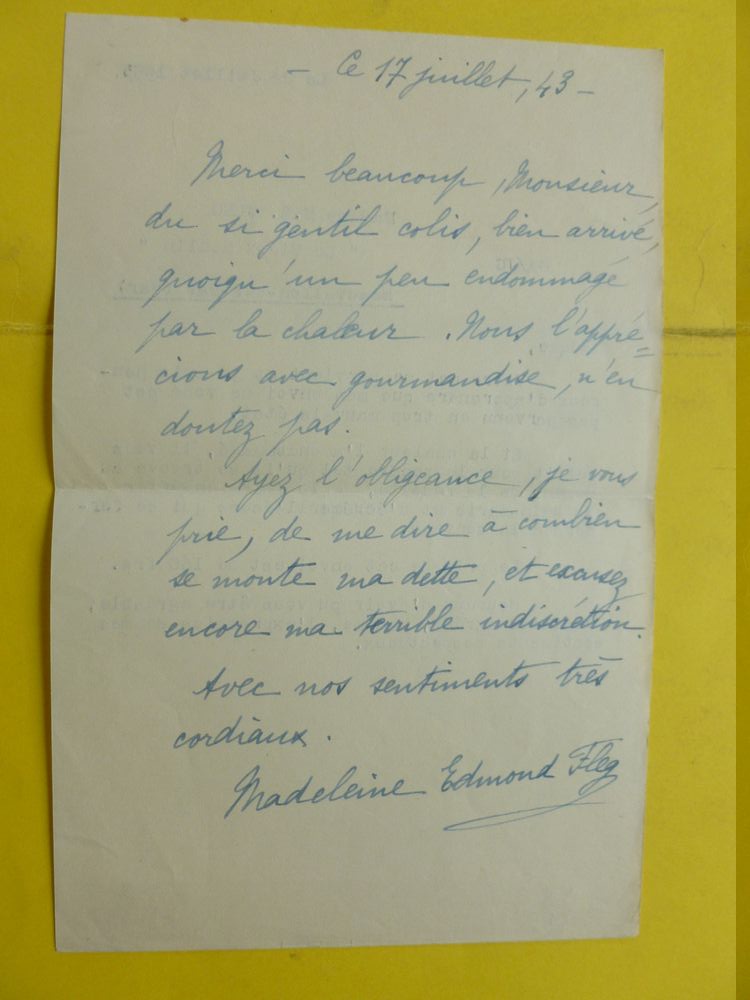 - Ce 17 juillet, 43 -
Merci beaucoup, Monsieur,
du si gentil colis, bien arrivé,
quoiqu'un peu endommagé
par la chaleur. Nous l'appré=
cions avec gourmandise, n'en
doutez pas.
Ayez l'obligeance, je vous
prie, de me dire à combien
se monte ma dette, et excusez
encore ma terrible indiscrétion.
Avec nos sentiments très
cordiaux.
Madeleine Edmond Fleg